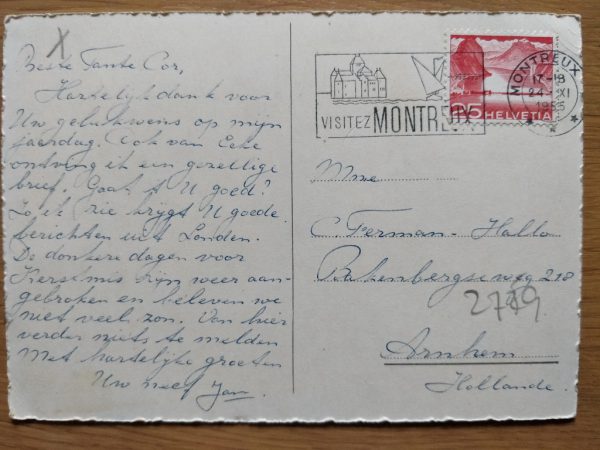 X
Beste Tante Cor,
Hartelijk dank voor
Uw gelukwens op mijn
jaardag. Ook van Eeke
ontving ik een gezellige
brief. Gaat 't U goed?
Zo ik zie krijgt U goede
berichten uit Londen.
De donkere dagen voor
Kerstmis zijn weer aan-
gebroken en beleven we
niet veel zon. Van hier
verder niets te melden
Met hartelijke groeten
Uw neef Jan.
VISITEZ MONTREUX
MONTREUX
17-18
24. XI
1955
25 HELVETIA
Mme
C. Ferman - Hallo
Bakenbergseweg 218
Arnhem
Hollande.